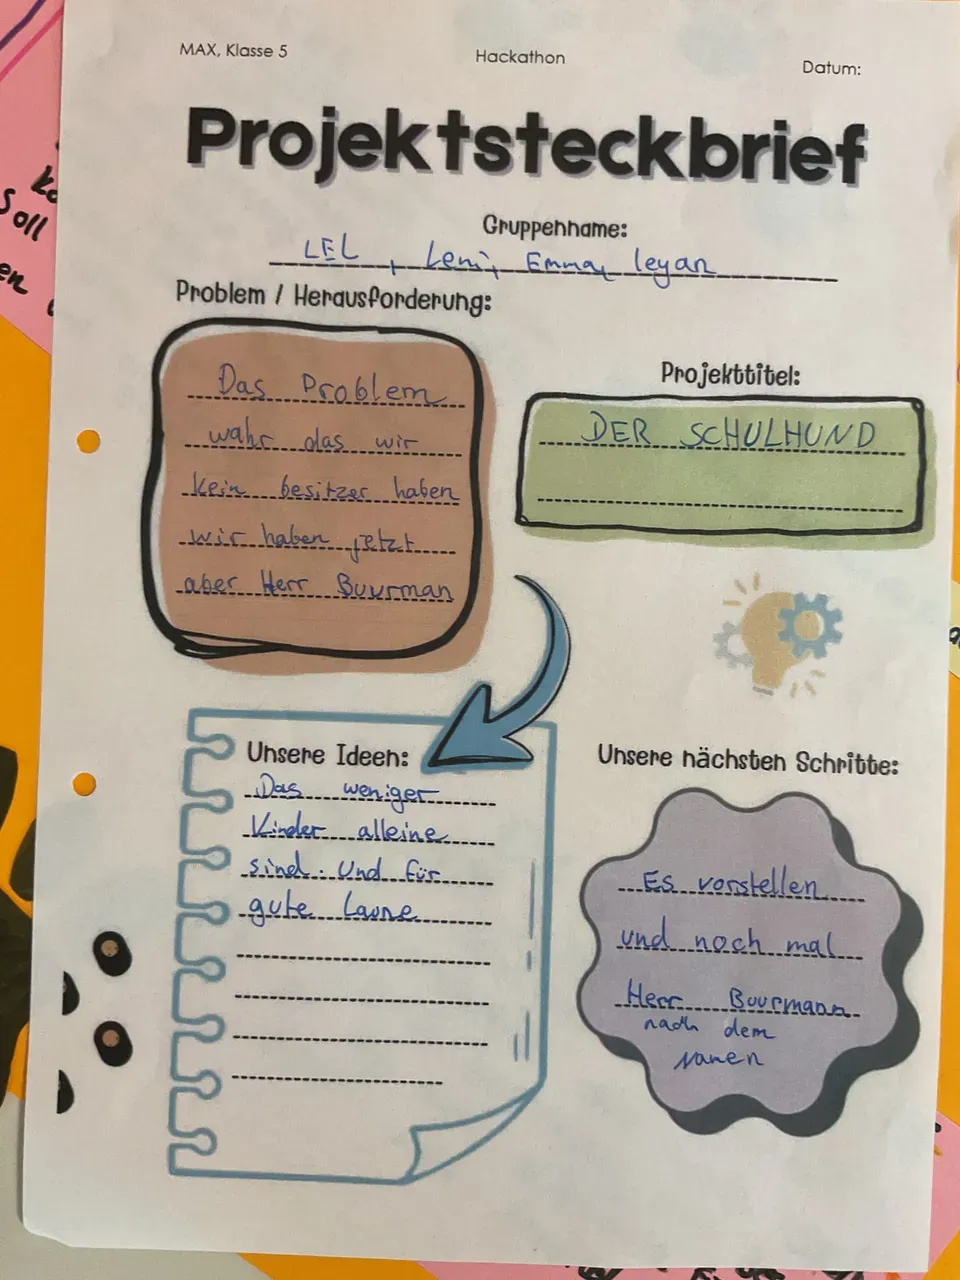 MAX, Klasse 5
Hackathon
Datum:
Projektsteckbrief
Gruppenname:
LEL, Leni, Emma, leyan
Problem / Herausforderung:
Das Problem
wahr das wir
kein besitzer haben
wir haben jetzt
aber Herr Buurman
Projekttitel:
DER SCHULHUND
Unsere Ideen:
Das weniger
Kinder alleine
sind. Und für
gute Laune
Unsere nächsten Schritte:
Es vorstellen
und noch mal
Herr Buurmann
nach dem
namen
Soll
en